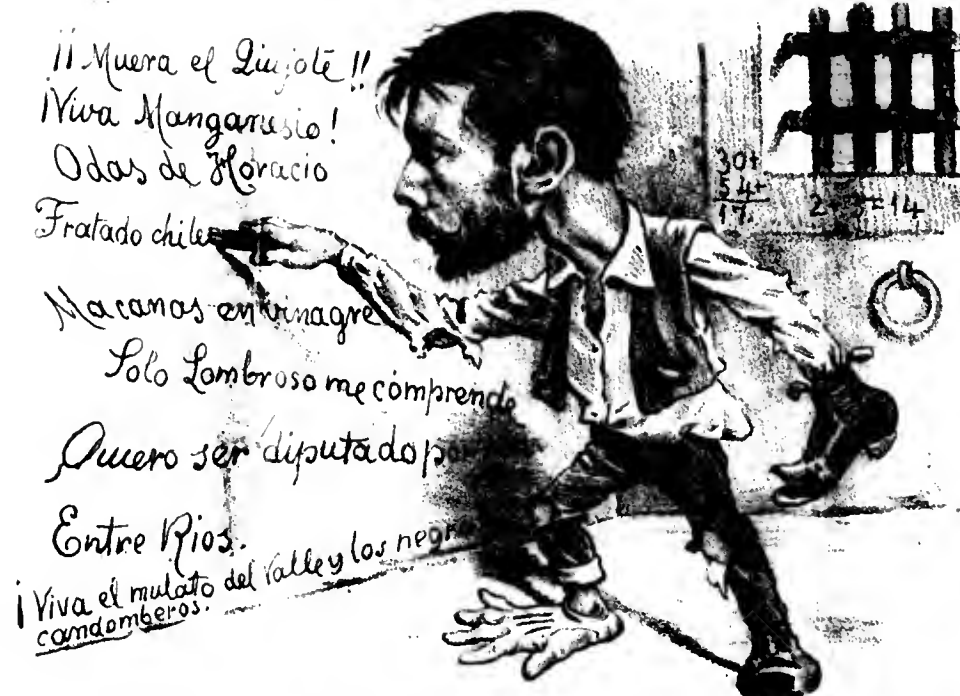 ¡¡Muera el Quijote!!
¡Viva Manganesio!
Odas de Horacio
Fratado chile
Macanas en vinagre
Solo Lombroso me comprende
Quiero ser diputado por
Entre Rios.
¡Viva el mulato del Valle y los negros
candomberos.
30+
54+
17
14